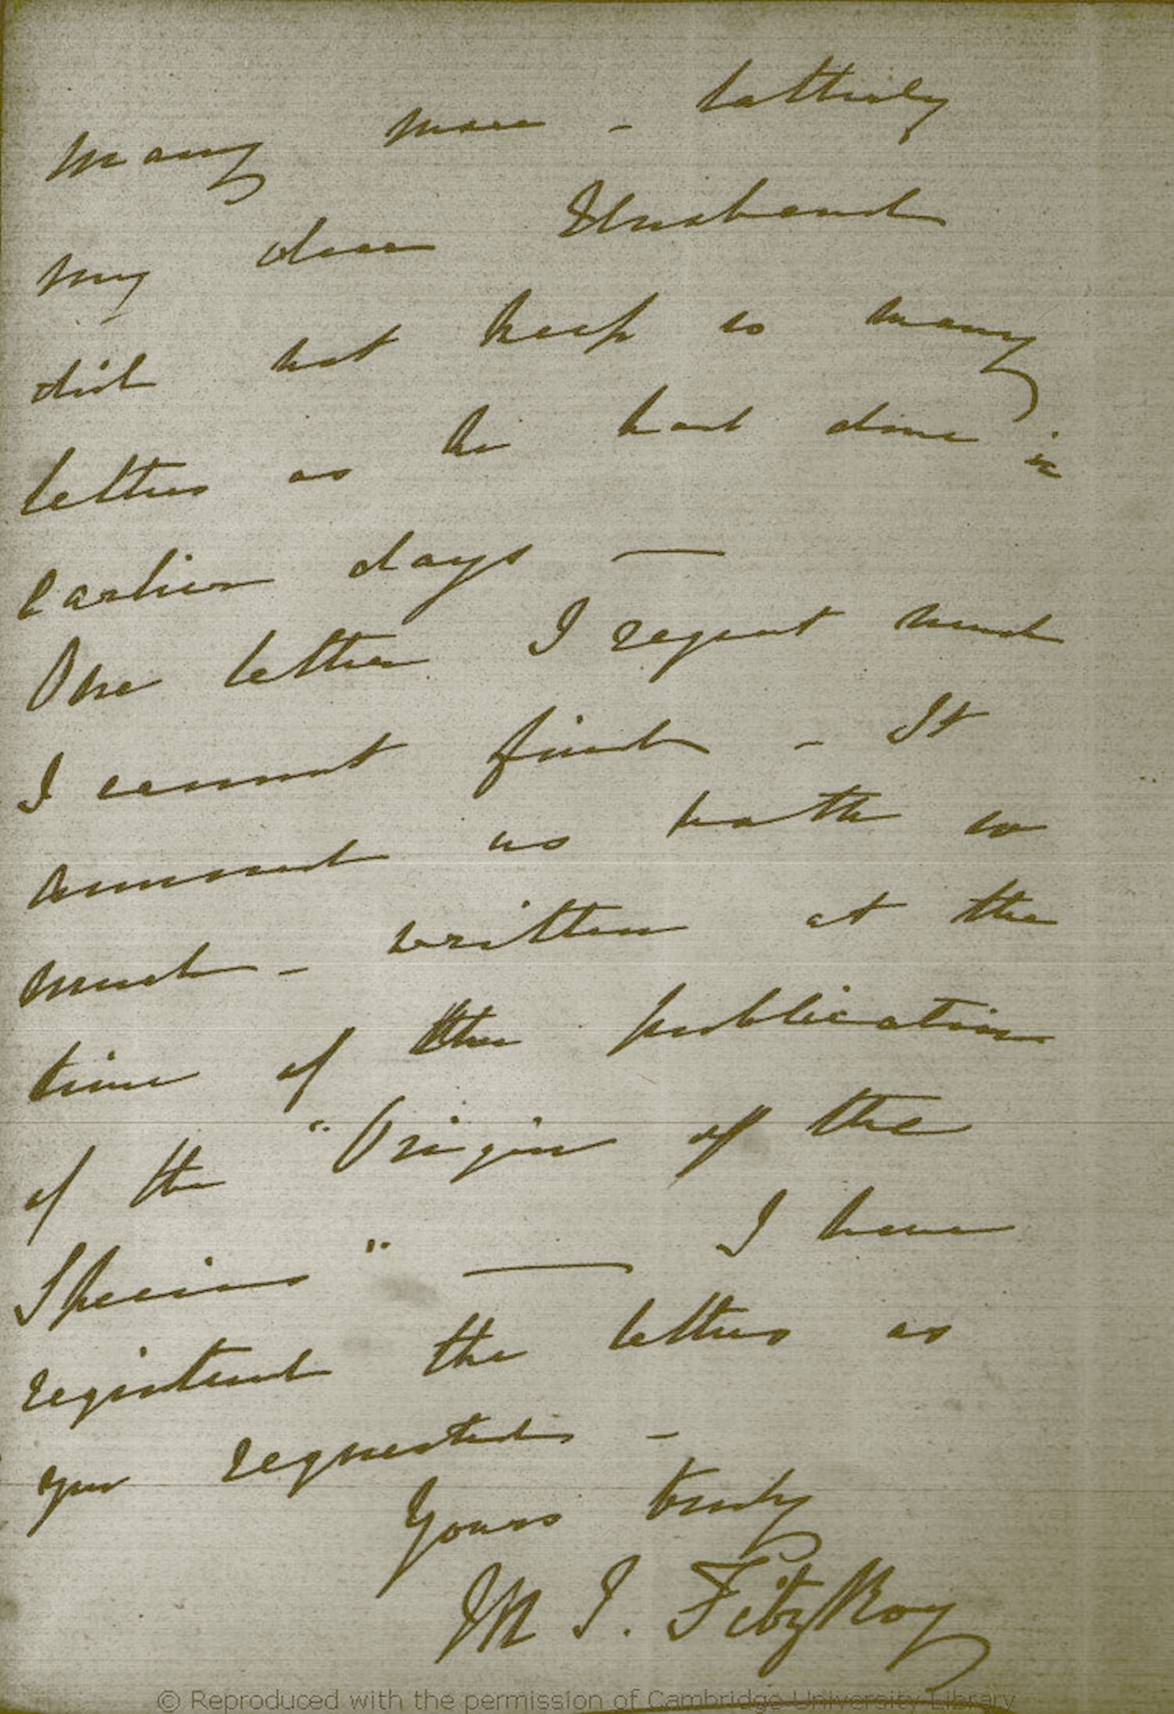 many more – latterly
my dear Husband
did not keep so many
letters as he had done in
earlier days —
One letter I regret much
I cannot find – It
amused us both so
much – written at the
time of the publication
of the "Origin of the
Species" — I have
registered the letters as
you requested –
Yours truly
M I. FitzRoy
© Reproduced with the permission of Cambridge University Library